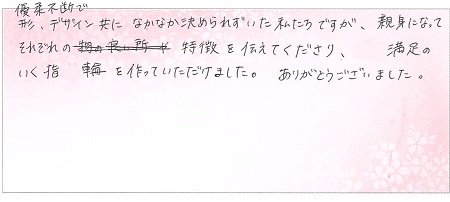 優柔不断で
形、デザイン共に なかなか決められずいた私たちですが、親身になって
それぞれの 特徴を伝えてくださり、 満足の
いく指 輪 を作っていただけました。 ありがとうございました。